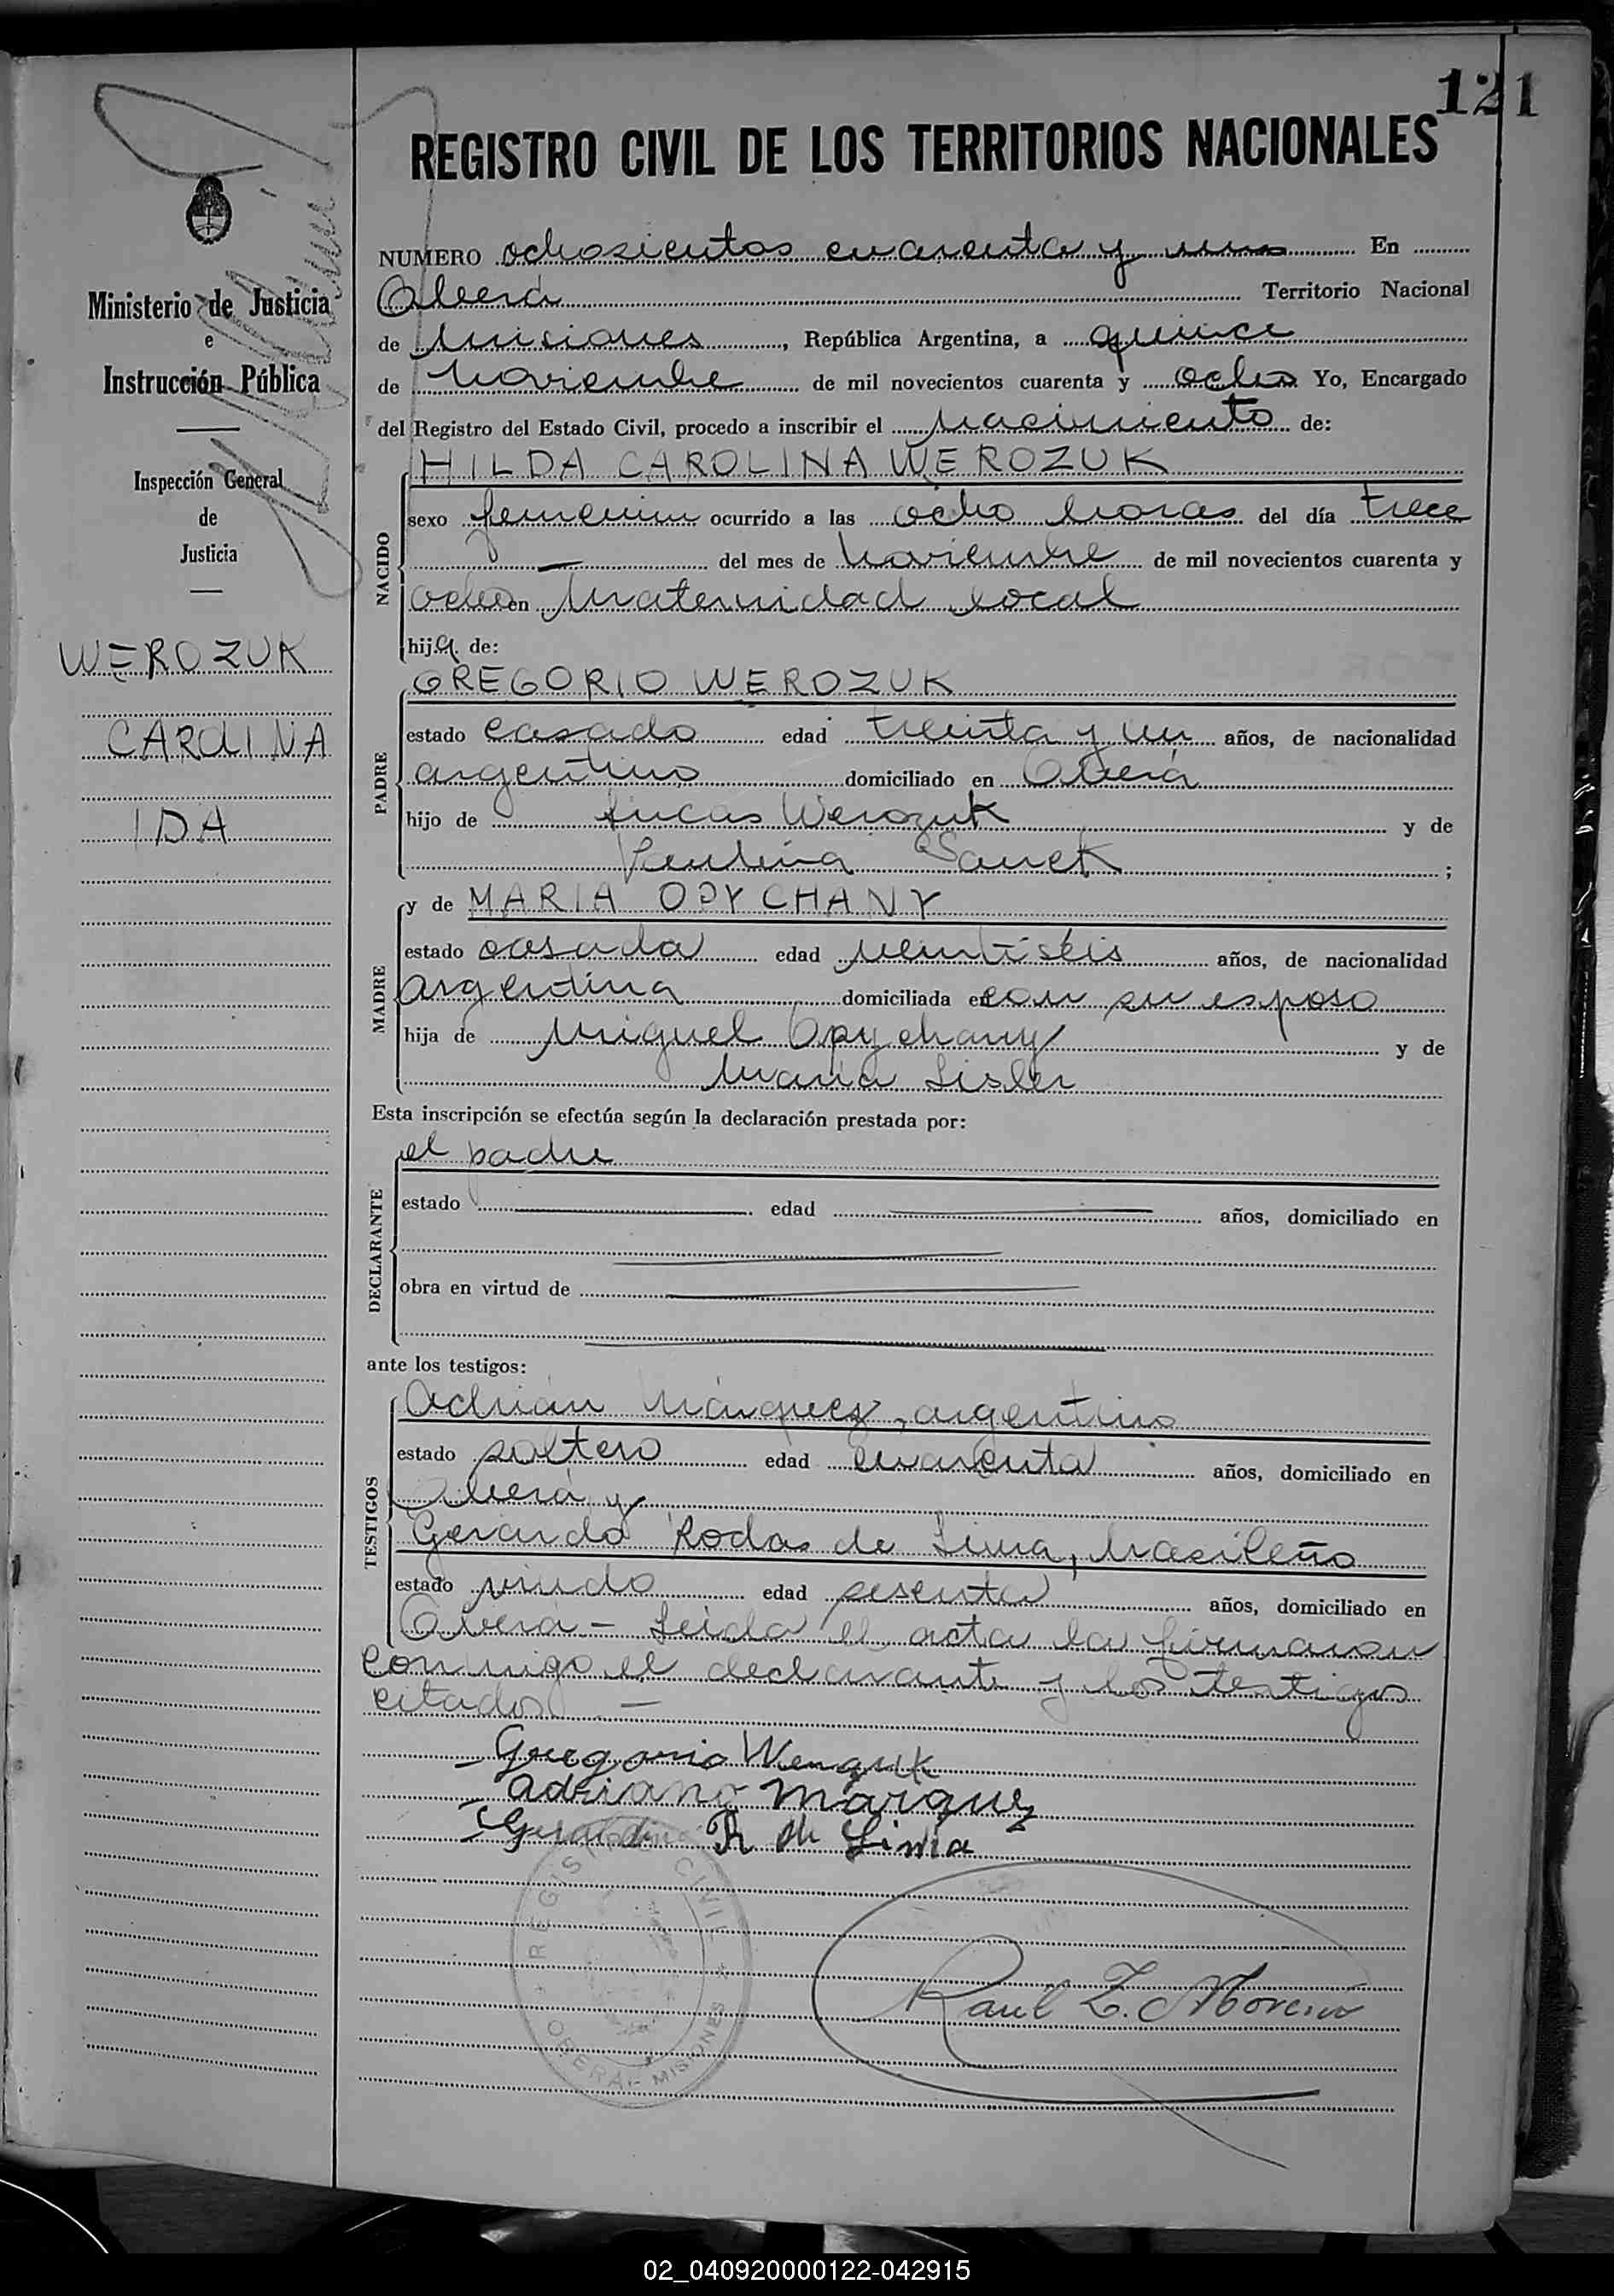 121
REGISTRO CIVIL DE LOS TERRITORIOS NACIONALES
Ministerio de Justicia
e
Instrucción Pública
Inspección General
de
Justicia
WEROZUK
CAROLINA
IDA
NUMERO ochosientos cuarenta y uno En
Oberá Territorio Nacional
de Misiones, República Argentina, a quince
de Noviembre de mil novecientos cuarenta y ocho Yo, Encargado
del Registro del Estado Civil, procedo a inscribir el Nacimiento de:
NACIDO
HILDA CAROLINA WEROZUK
sexo femenino ocurrido a las ocho horas del día trece
— del mes de Noviembre de mil novecientos cuarenta y
ocho en Maternidad local
hija de:
PADRE
GREGORIO WEROZUK
estado casado edad treinta y un años, de nacionalidad
argentino domiciliado en Oberá
hijo de Lucas Werozuk y de
Paulina Sauek ;
MADRE
y de MARIA OPYCHANY
estado casada edad veintiséis años, de nacionalidad
Argentina domiciliada en con su esposo
hija de Miguel Opychany y de
María Lisler
Esta inscripción se efectúa según la declaración prestada por:
DECLARANTE
el padre
estado edad años, domiciliado en
obra en virtud de
ante los testigos:
TESTIGOS
Adrián Márquez, argentino
estado soltero edad cuarenta años, domiciliado en
Oberá y
Gerardo Rodas de Lima, brasileño
estado viudo edad sesenta años, domiciliado en
Oberá - Leida el acta la firmaron
conmigo el declarante y los testigos
citados. —
Gregorio Werozuk
Adriano Marquez
R de Lima
REGISTRO CIVIL
OBERÁ - MISIONES
Raul Z. Moreira
02_040920000122-042915